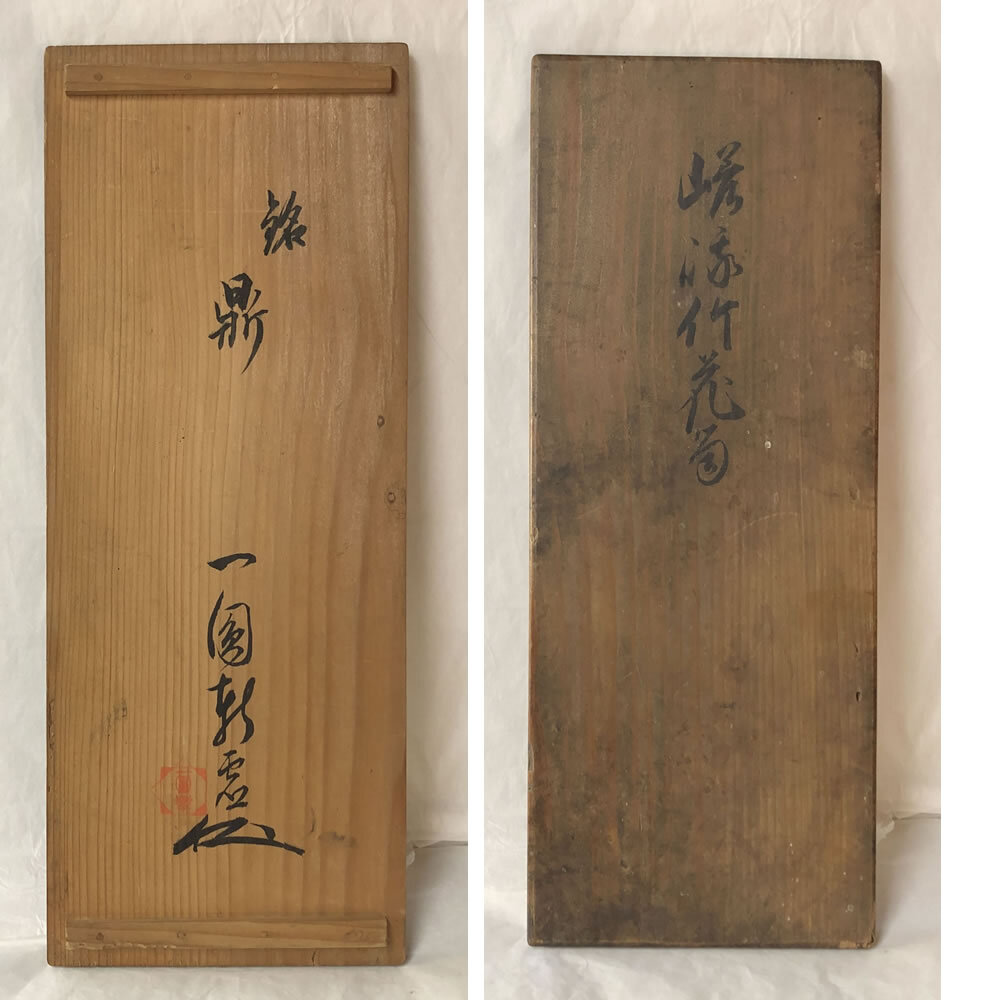 銘
鼎
一圓軒
嵯峨竹花筒